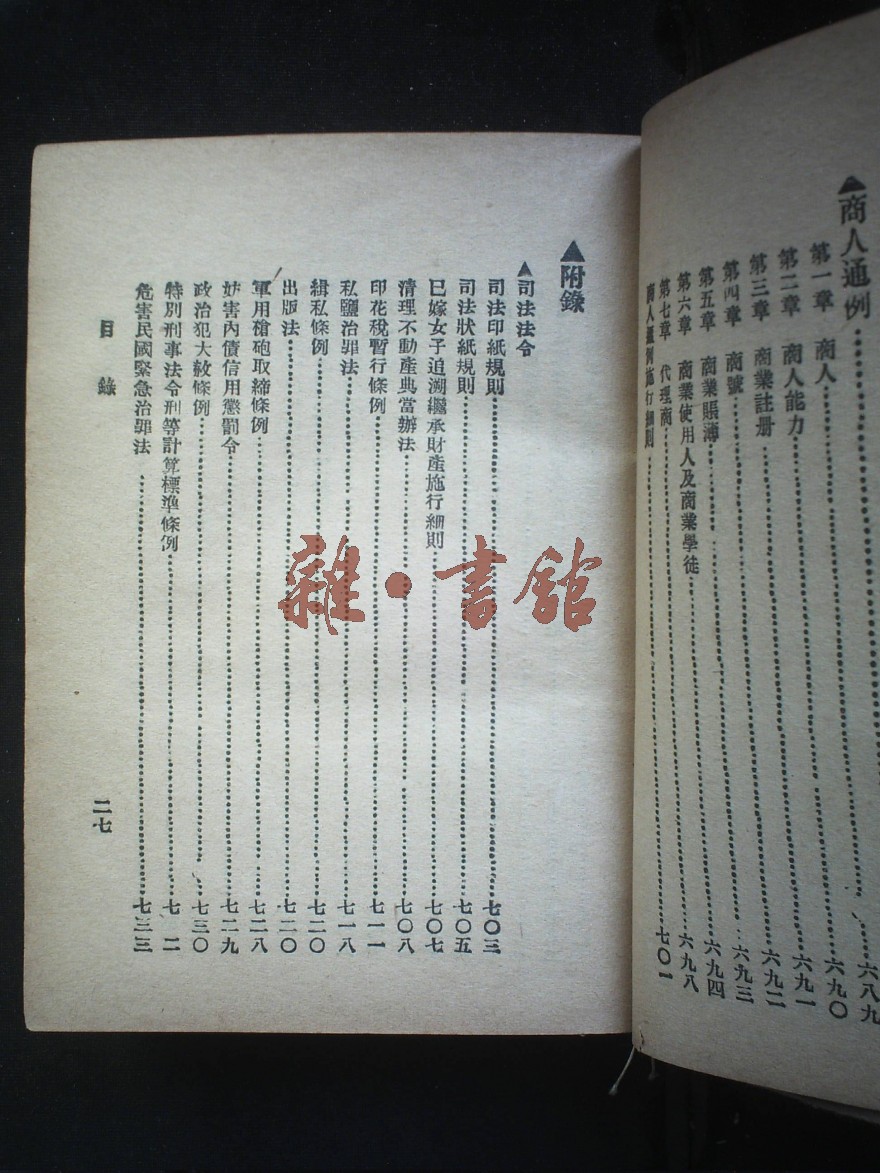 ▲商人通例
第一章 商人……六八九
第二章 商人能力……六九〇
第三章 商業註册……六九一
第四章 商號……六九二
第五章 商業賬簿……六九三
第六章 商業使用人及商業學徒……六九四
第七章 代理商……六九八
商人通例施行細則……七〇一
▲附錄
▲司法法令
司法印紙規則……七〇三
司法狀紙規則……七〇五
已嫁女子追溯繼承財產施行細則……七〇七
清理不動產典當辦法……七〇八
印花稅暫行條例……七一一
私鹽治罪法……七一八
緝私條例……七二〇
出版法……七二〇
軍用槍砲取締條例……七二八
妨害內債信用懲罰令……七二九
政治犯大赦條例……七三〇
特別刑事法令刑等計算標準條例……七三二
危害民國緊急治罪法……七三三
目錄
二七
雜·書館